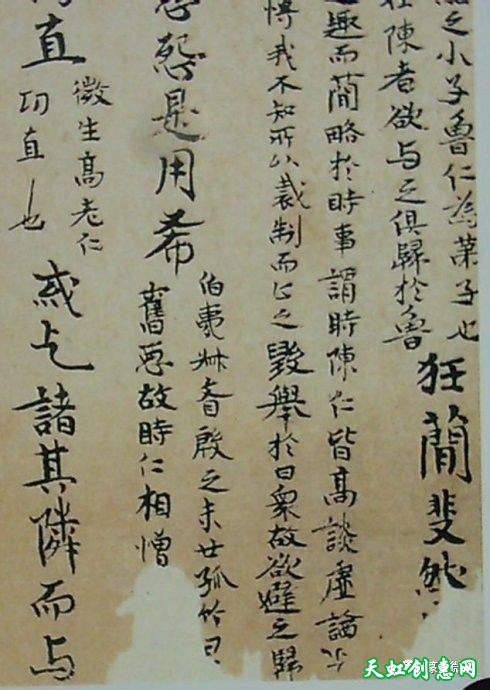 之小子魯仁為苐子也
陳者欲与之俱歸於魯
狂蕳斐然
趣而蕳略於時事謂時陳仁皆高談虛論
我不知所以裁制而止之毀舉於日衆故欲避之歸
怨是用希
伯夷叔齊殷之末世孤竹
舊惡故時仁相憎
直
微生高老仁
直也
或乞諸其隣而与
天虹创意网